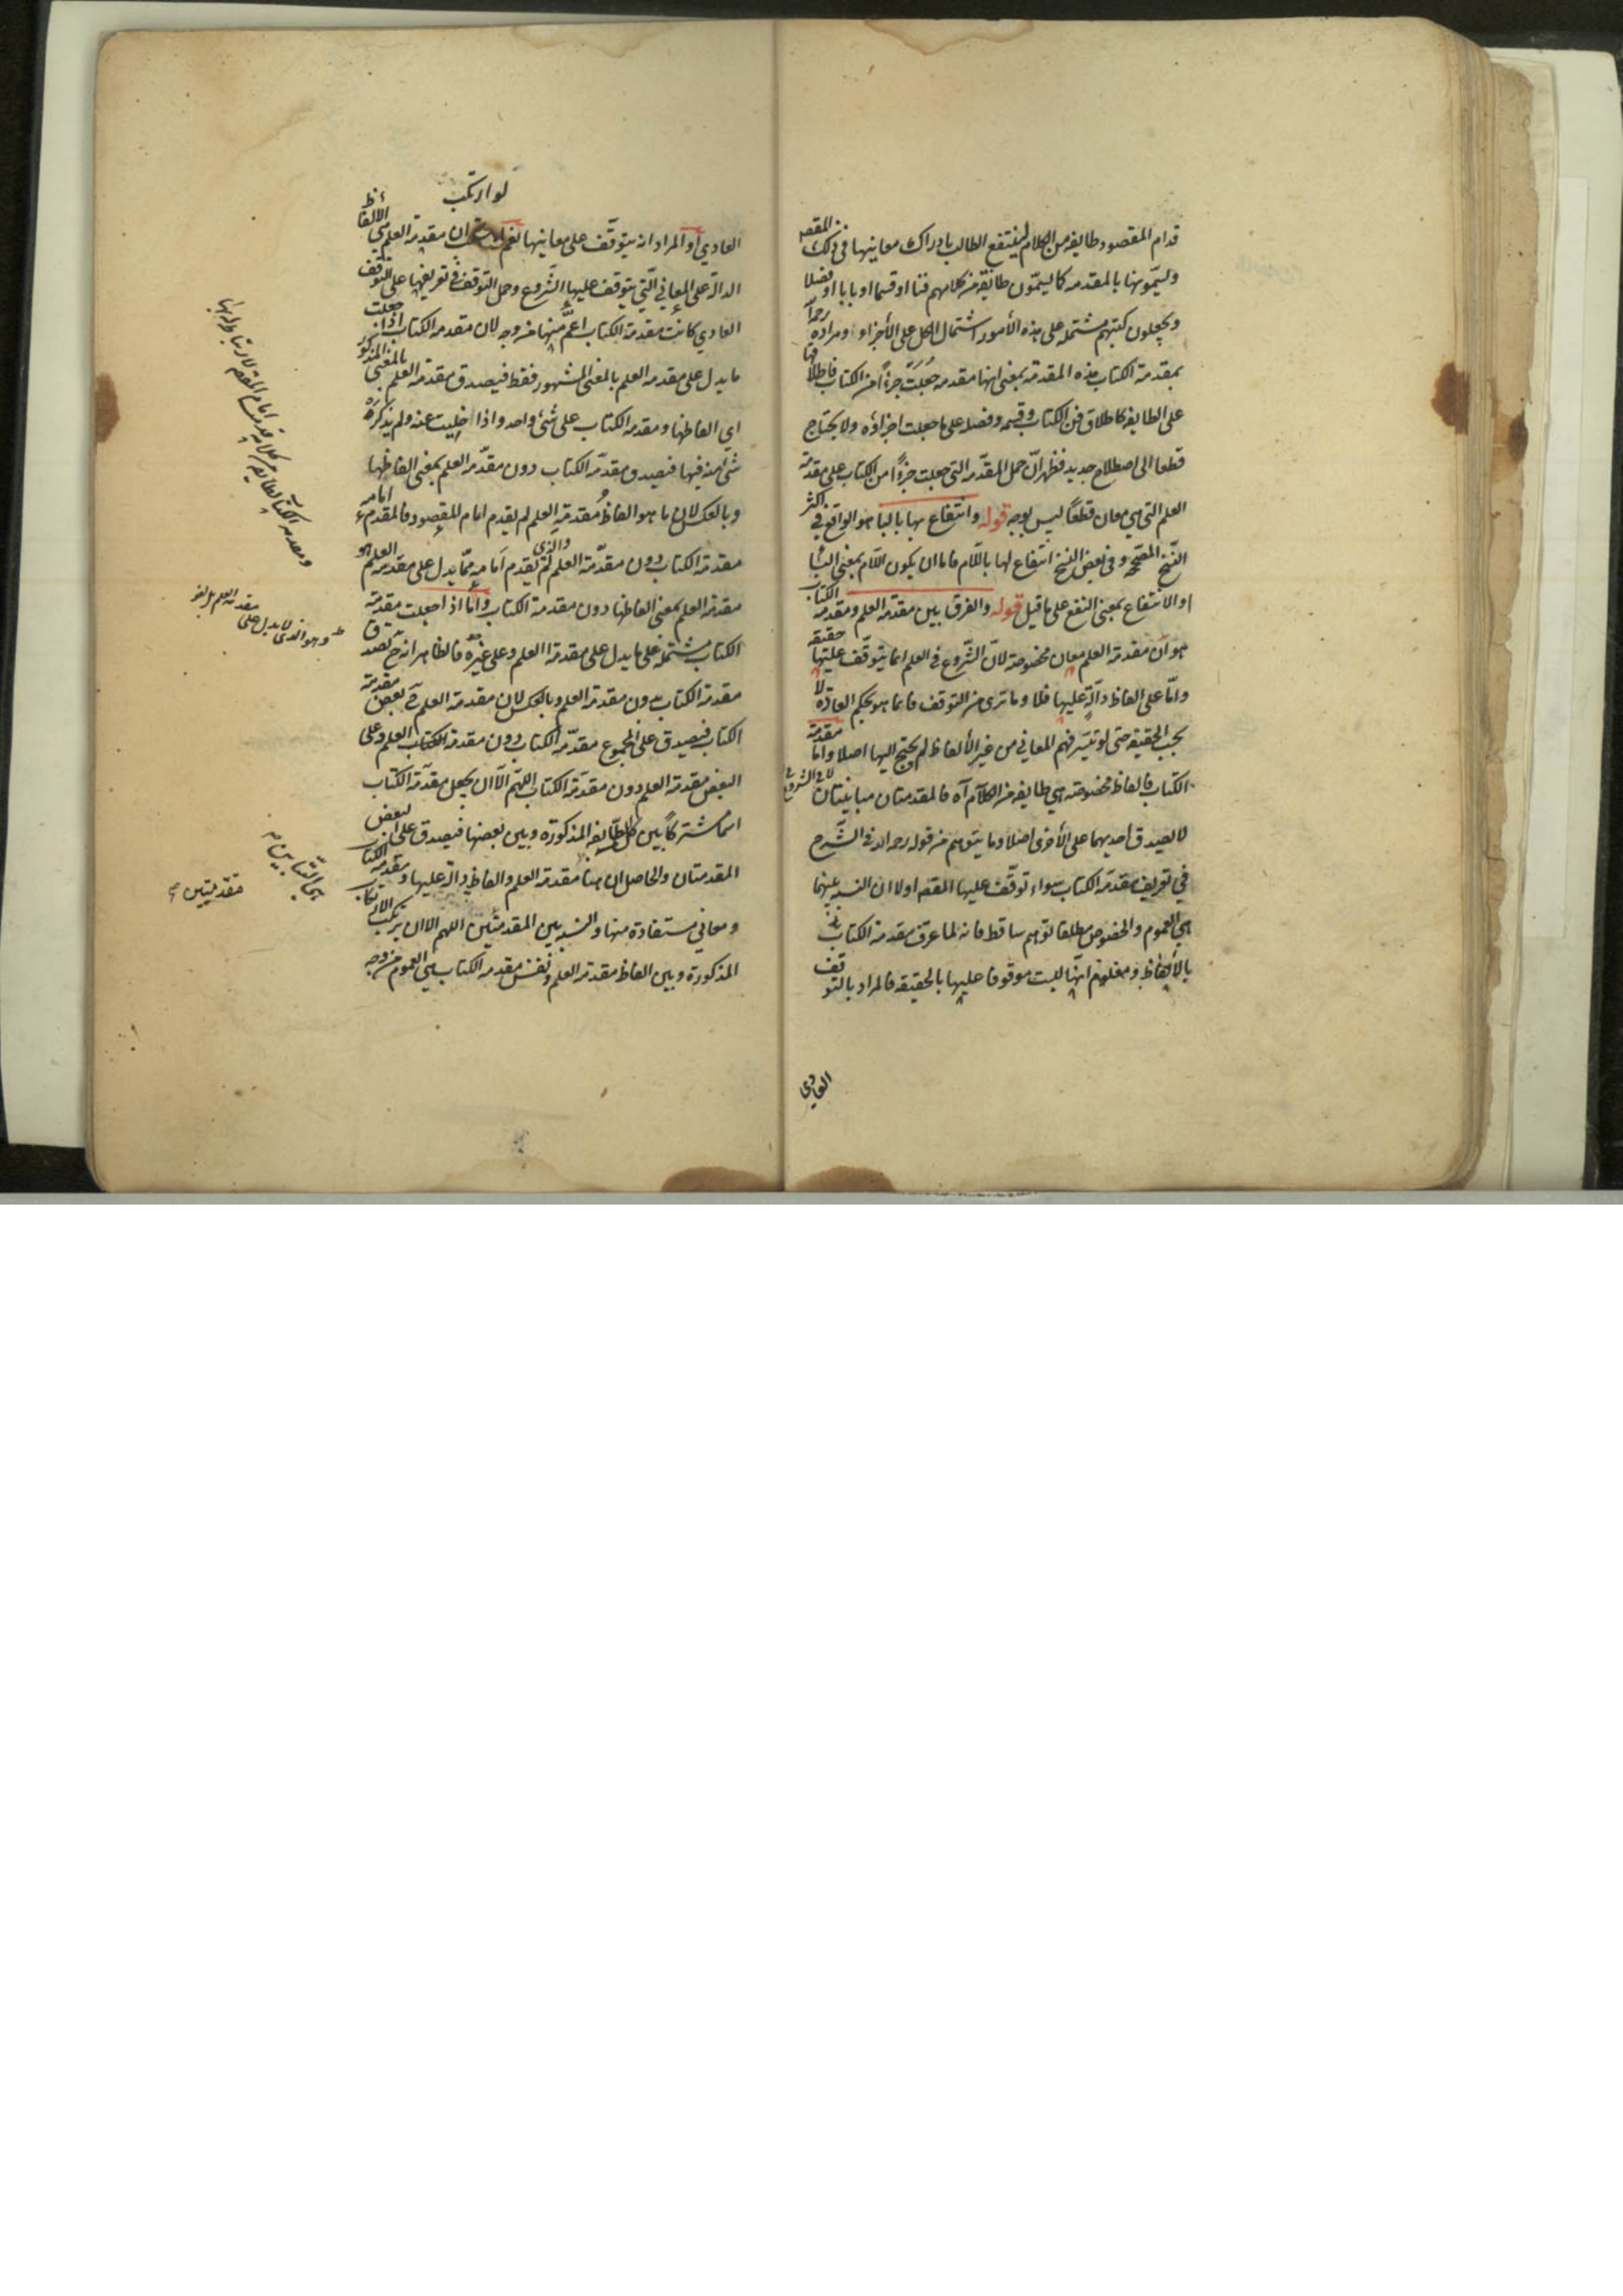 قدام المقصود طايفة من الكلام لينتفع الطالب بادراك معانيها في ذلك المقصد
ويسمونها بالمقدمة كما يسمون طائفة من كلامهم فنا او قسما او بابا او فصلا
ويجعلون كتبهم مشتملة على هذه الأمور اشتمال الكل على الأجزاء ومراده
بمقدمة الكتاب هذه المقدمة بمعنى انها مقدمة جعلت جزءًا من الكتاب فاطلاقها
على الطايفة كاطلاق فن الكتاب وقسمه وفصله على ما جعلت اجزاؤه ولا يحتاج
قطعا الى اصطلاح جديد فظهر ان حمل المقدمة التي جعلت جزءًا من الكتاب على مقدمة
العلم التي هي معان قطعًا ليس بوجه قوله وانتفاع بها بالبا هو الواقع في اكثر
النسخ المصححة وفي بعض النسخ انتفاع لها باللام فاما ان يكون اللام بمعنى البا
او الانتفاع بمعنى النفع على ما قيل قوله والفرق بين مقدمة العلم ومقدمة الكتاب
هو ان مقدمة العلم معان مخصوصة لان الشروع في العلم انما يتوقف عليها حقيقة
واما على الفاظ دالة عليها فلا وما ترى من التوقف فانما هو بحكم العادة لا
بحسب الحقيقة حتى لو تيسر فهم المعاني من غير الألفاظ لم يحتج اليها اصلا واما مقدمة
الكتاب فالفاظ مخصوصة هي طايفة من الكلام آه فالمقدمتان مباينتان
لا يصدق احديهما على الأخرى اصلا وما يتوهم من قوله رحمه الله في الشرح
في تعريف مقدمة الكتاب سواء توقف عليها المقصد اولا ان النسبة بينهما
هي العموم والخصوص مطلقا توهم ساقط فانه لما عرف مقدمة الكتاب
بالألفاظ ومعلوم انها ليست موقوفا عليها بالحقيقة فالمراد بالتوقف
العادي
لو ارتكب
العادي او المراد انه يتوقف على معانيها نعم ان مقدمة العلم هي الالفاظ
الدالة على المعاني التي يتوقف عليها الشروع وحمل التوقف في تعريفها على التوقف
العادي كانت مقدمة الكتاب اعم منها من وجه لان مقدمة الكتاب اذا جعلت
ما يدل على مقدمة العلم بالمعنى المشهور فقط فيصدق مقدمة العلم بالمعنى المذكور
اي الفاظها ومقدمة الكتاب على شئ واحد واذا خليت عنه ولم يذكر
شئ منه فيها فيصدق مقدمة الكتاب دون مقدمة العلم بمعنى الفاظها
وبالعكس لان ما هو الفاظ مقدمة العلم لم يقدم امام المقصود فالمقدم امامه
مقدمة الكتاب دون مقدمة العلم والذي لم يقدم امامه مما يدل على مقدمة العلم هو
مقدمة العلم بمعنى الفاظها دون مقدمة الكتاب واما اذا جعلت مقدمة
الكتاب مشتملة على ما يدل على مقدمة العلم وعلى غيره فالظاهر انه ح يصدق
مقدمة الكتاب بدون مقدمة العلم وبالعكس لان مقدمة العلم ح بعض مقدمة
الكتاب فيصدق على المجموع مقدمة الكتاب دون مقدمة العلم وعلى
البعض مقدمة العلم دون مقدمة الكتاب اللهم الا ان يجعل مقدمة الكتاب
اسما مشتركًا بين كل الطايفة المذكورة وبين بعضها فيصدق على البعض
المقدمتان والحاصل ان هنا مقدمة العلم والفاظ دالة عليها ومقدمة الكتاب
ومعاني مستفادة منها والنسبة بين المقدمتين اللهم الا ان يرتكب الارتكاب
المذكورة وبين الفاظ مقدمة العلم ونفس مقدمة الكتاب هي العموم من وجه
وهو الذي لا يدل على مقدمة العلم
هي التباين